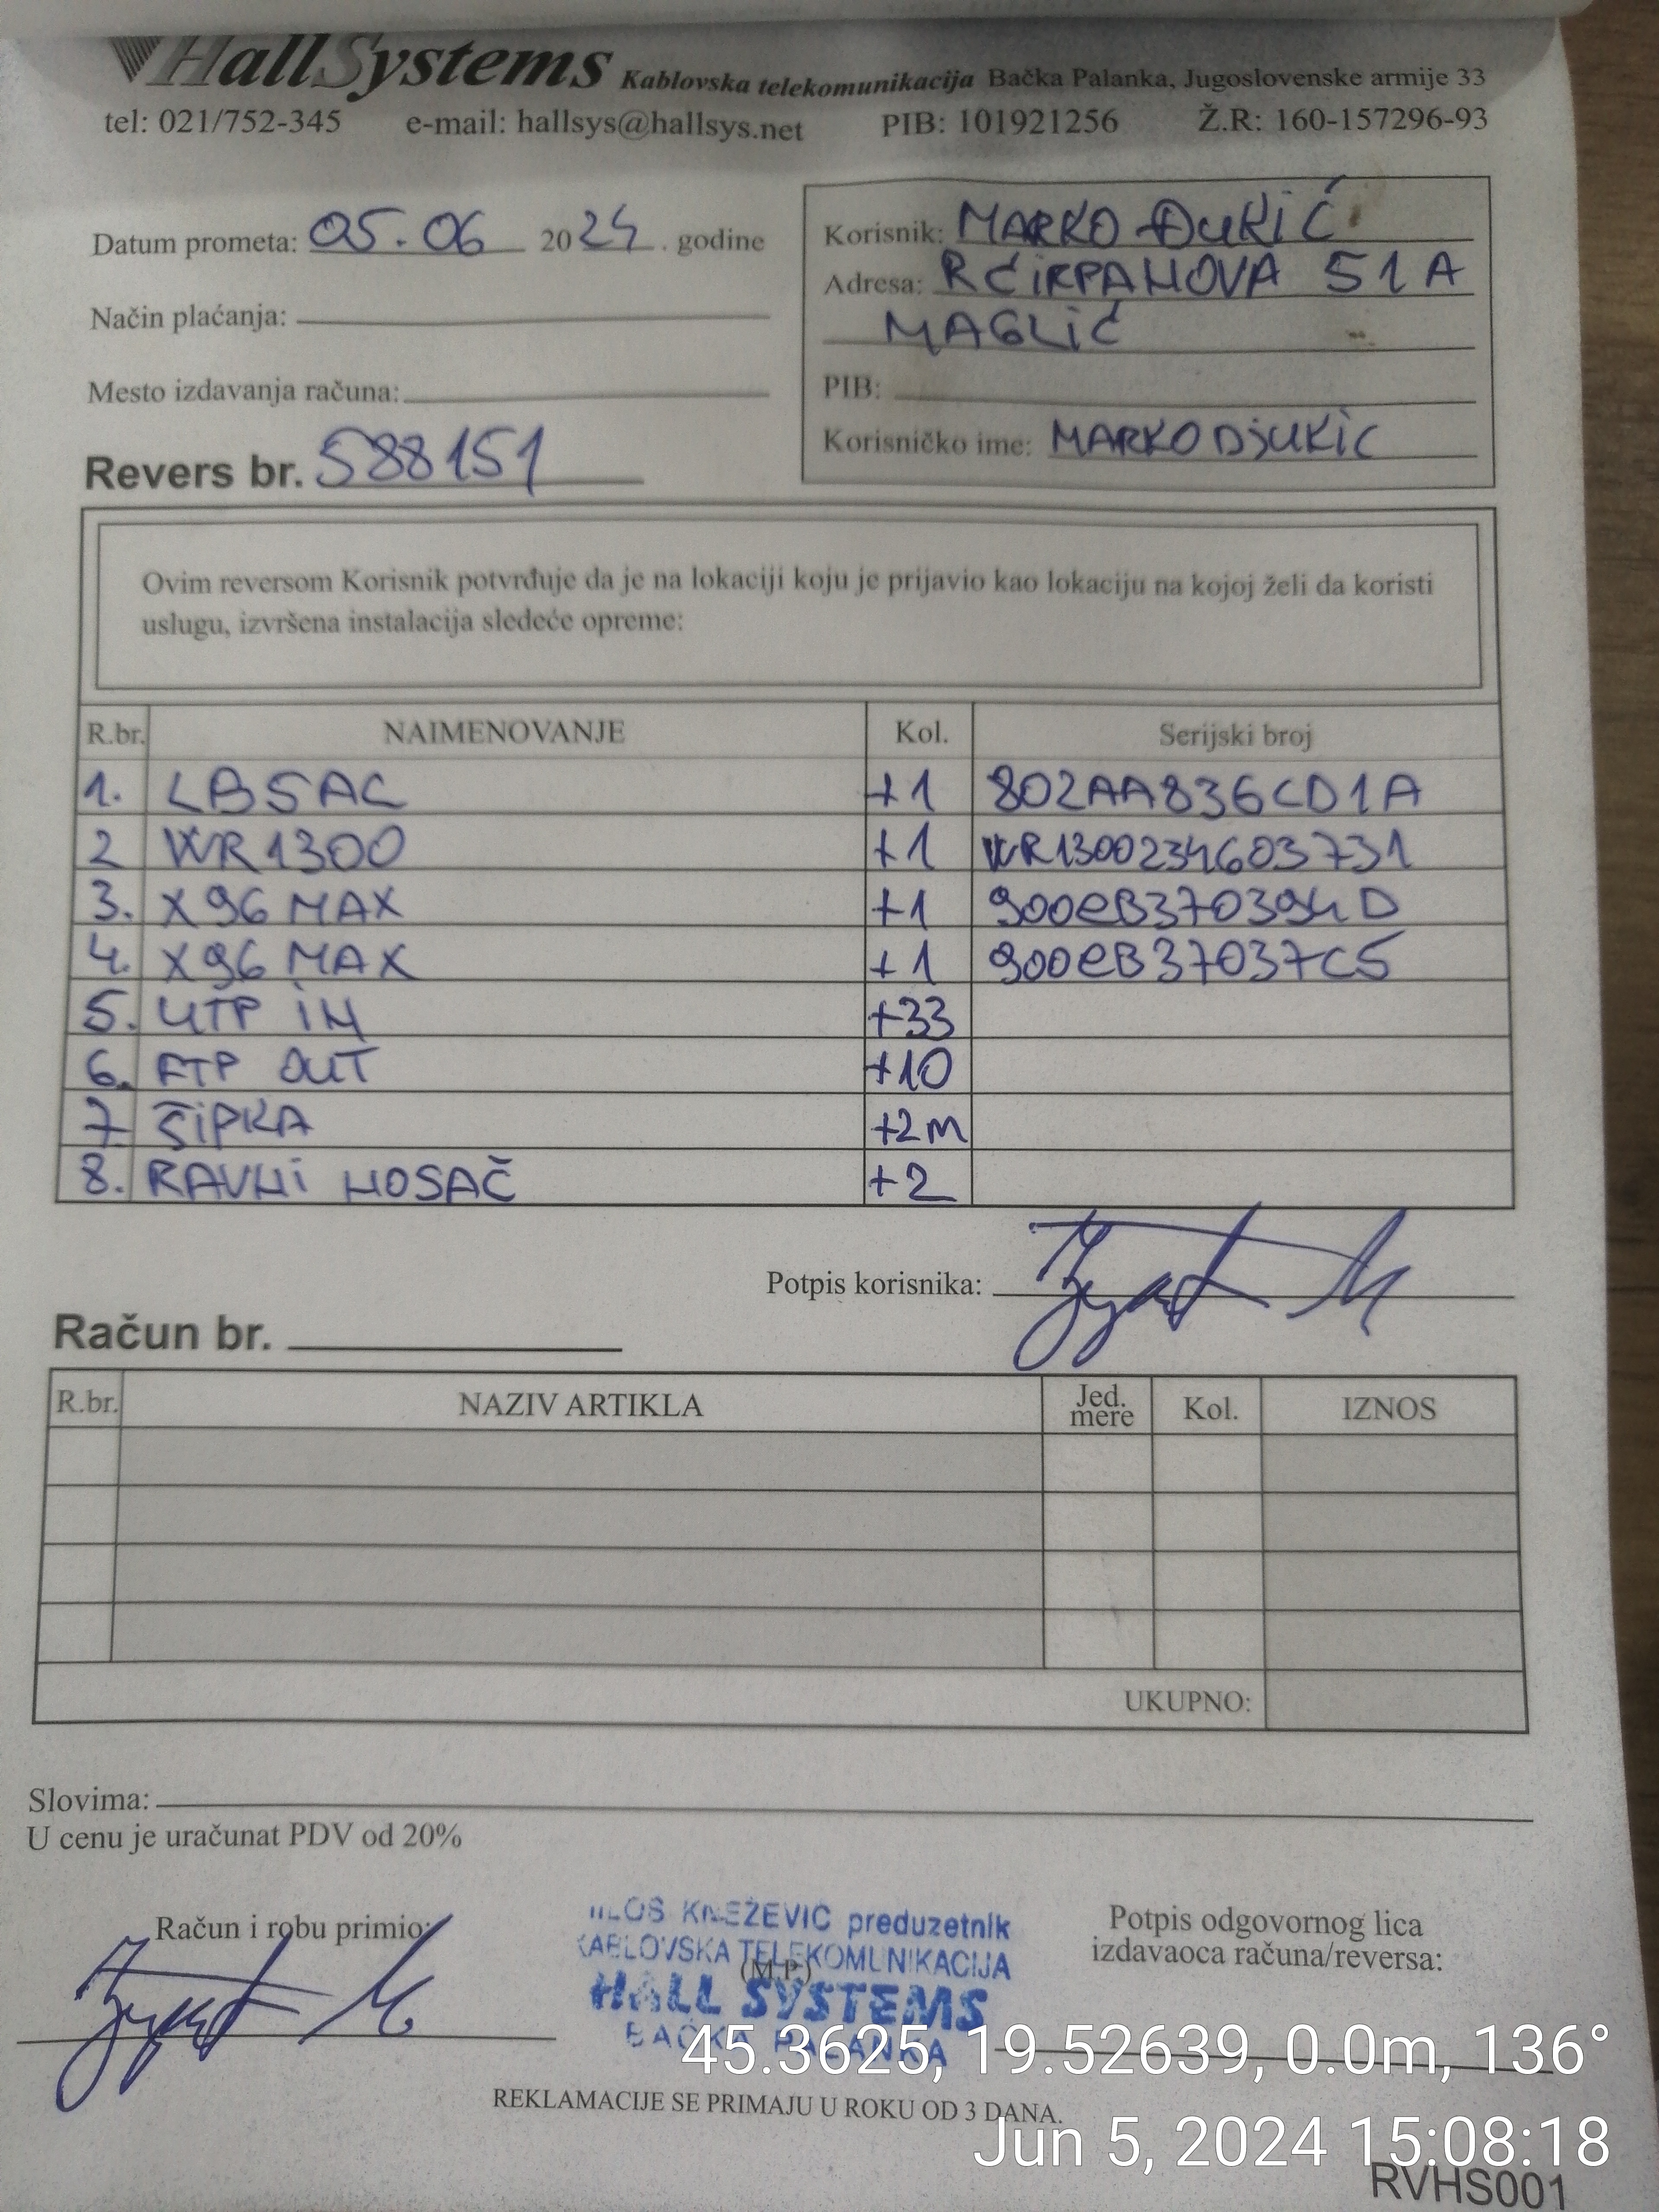 HallSystems Kablovska telekomunikacija Bačka Palanka, Jugoslovenske armije 33
tel: 021/752-345 e-mail: hallsys@hallsys.net PIB: 101921256 Ž.R: 160-157296-93
Datum prometa: 05.06 2024. godine
Način plaćanja:
Mesto izdavanja računa:
Revers br. 588151
Korisnik: MARKO ĐUKIĆ
Adresa: R ĆIRPANOVA 51A
MAGLIĆ
PIB:
Korisničko ime: MARKODJUKIC
Ovim reversom Korisnik potvrđuje da je na lokaciji koju je prijavio kao lokaciju na kojoj želi da koristi
uslugu, izvršena instalacija sledeće opreme:
R.br. NAIMENOVANJE Kol. Serijski broj
1. LB5AC +1 802AA836CD1A
2 WR1300 +1 WR1300234603731
3. X96 MAX +1 900eB370394D
4. X96 MAX +1 900eB37037C5
5. UTP IN +33
6. FTP OUT +10
7 ŠIPKA +2m
8. RAVNI NOSAČ +2
Potpis korisnika:
Račun br.
R.br. NAZIV ARTIKLA Jed. mere Kol. IZNOS
UKUPNO:
Slovima:
U cenu je uračunat PDV od 20%
Račun i robu primio:
KNEŽEVIĆ preduzetnik
TELEKOMUNIKACIJA
(M.P.)
HALL SYSTEMS
BAČKA PALANKA
Potpis odgovornog lica
izdavaoca računa/reversa:
45.3625, 19.52639, 0.0m, 136°
REKLAMACIJE SE PRIMAJU U ROKU OD 3 DANA.
Jun 5, 2024 15:08:18
RVHS001